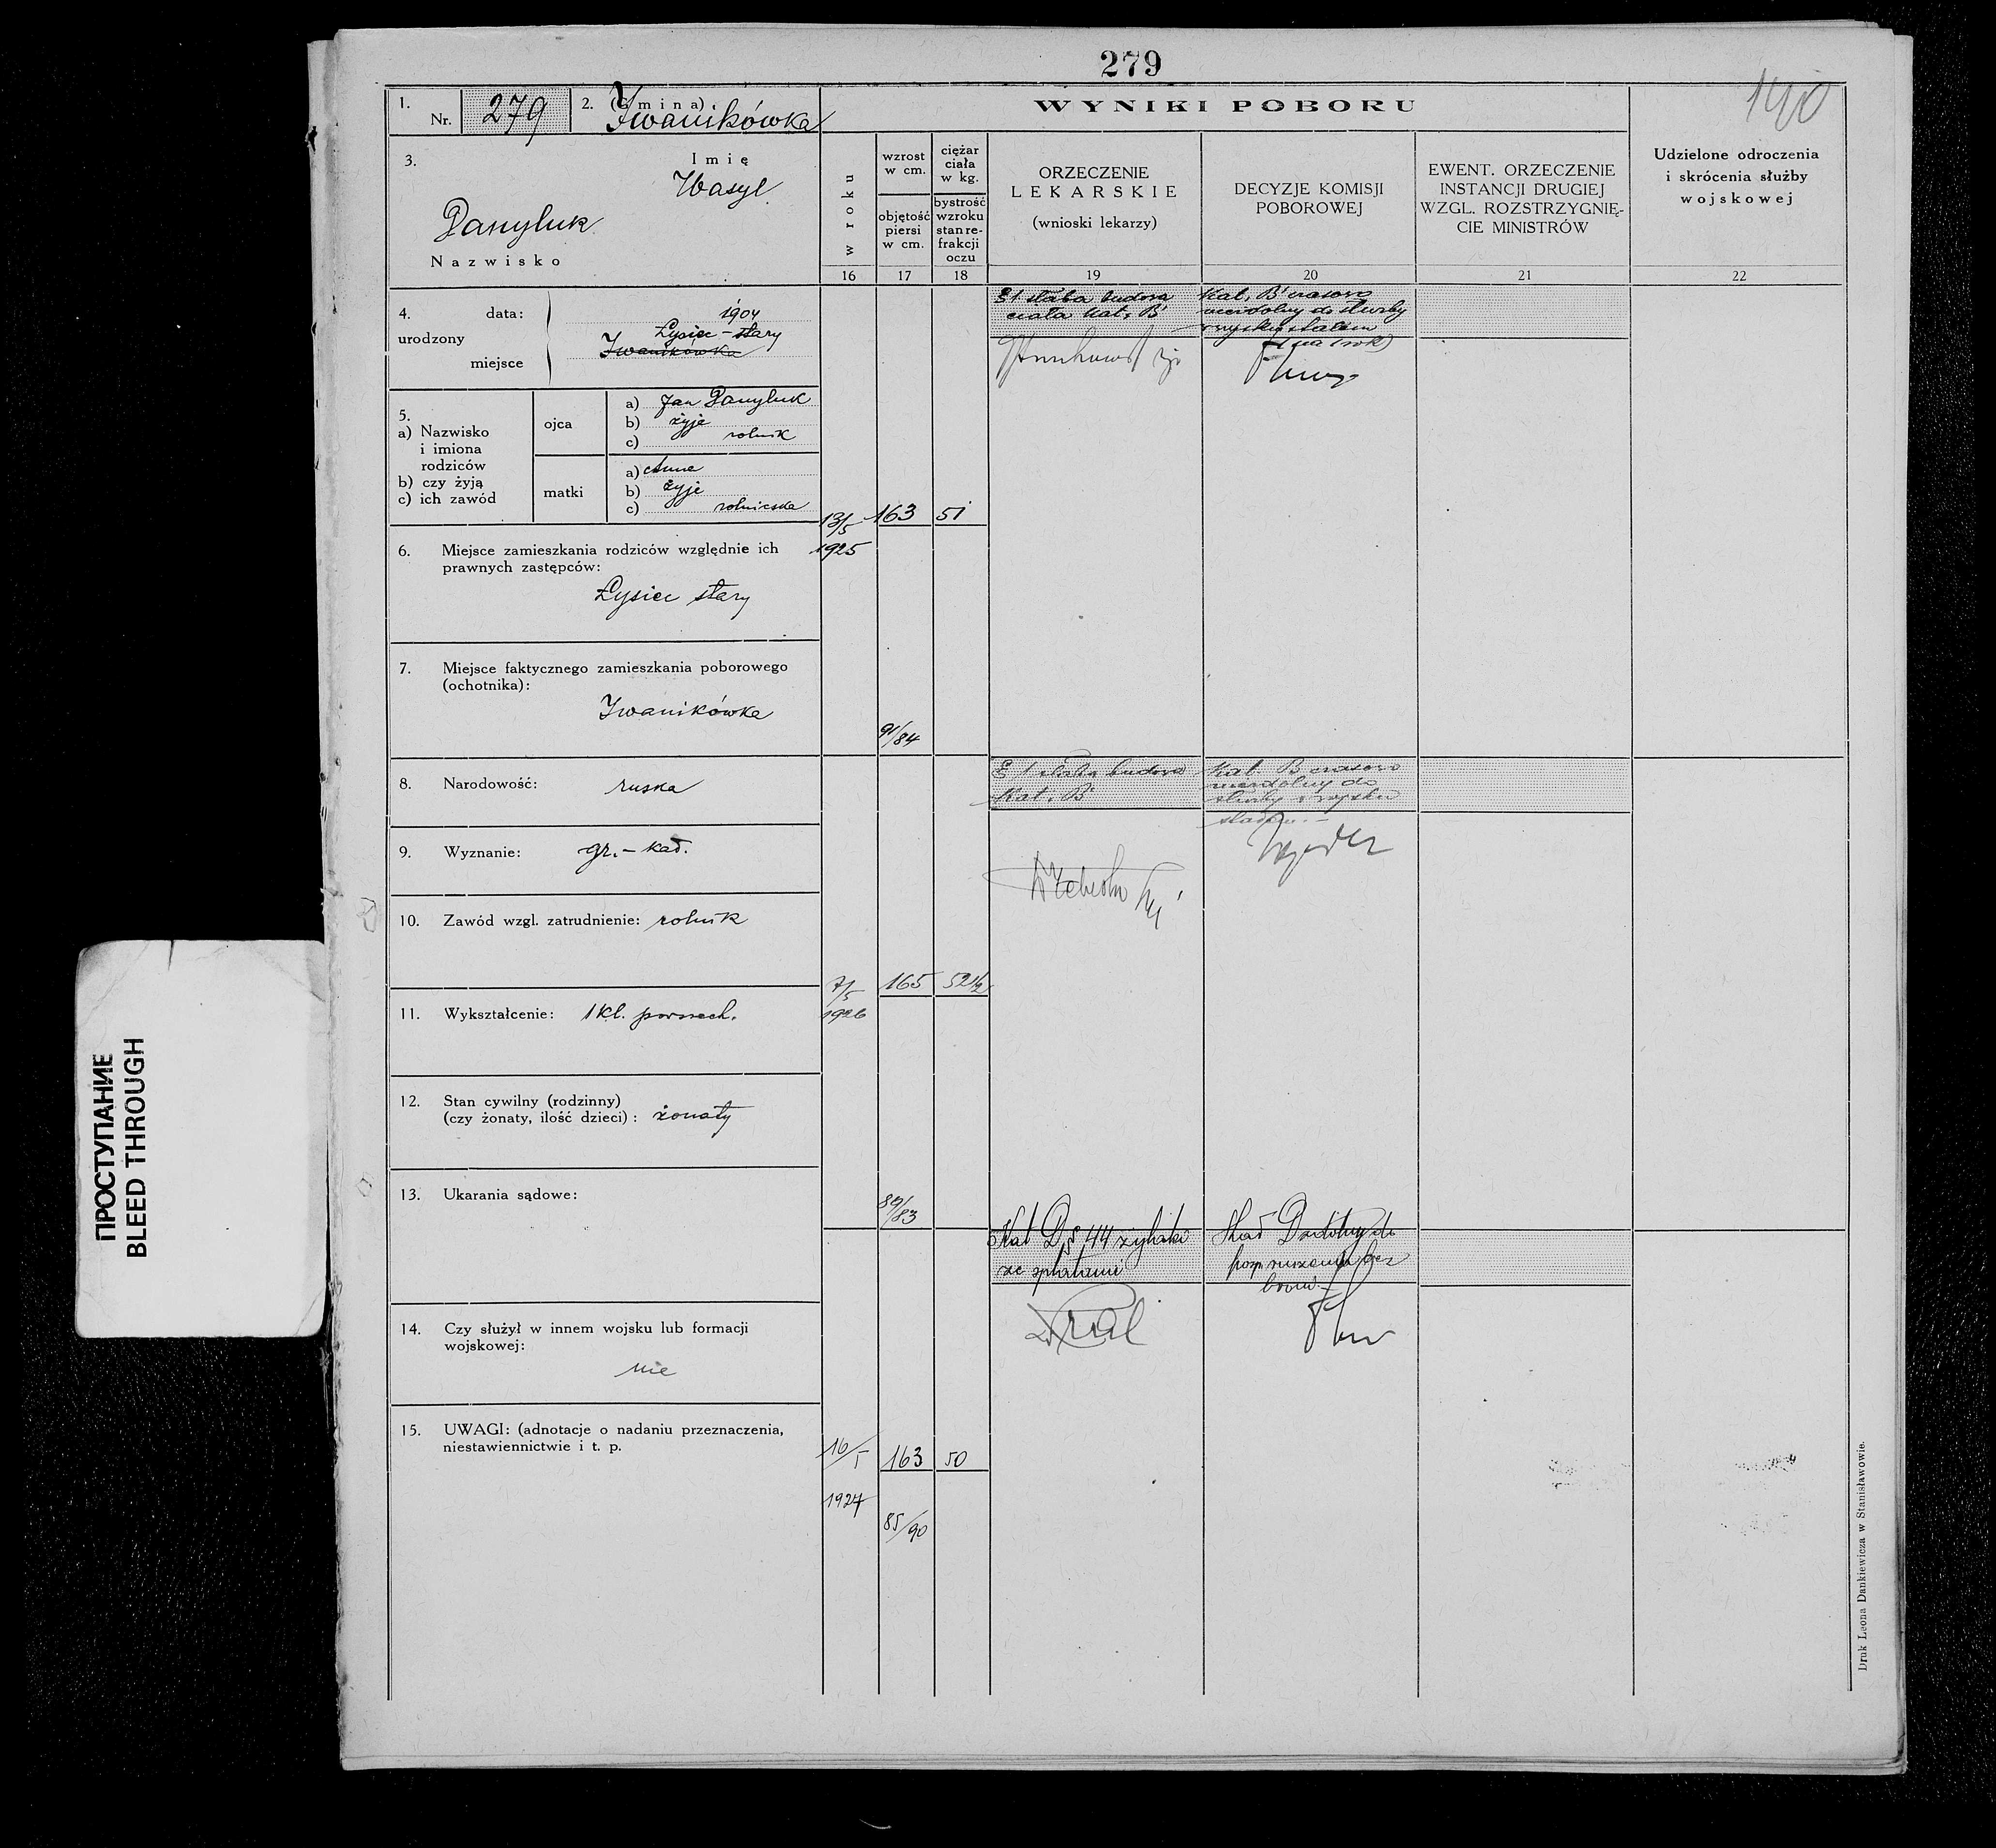 279
140
1. Nr. 279
2. (Gmina) Iwanikówka
WYNIKI POBORU
3. Imię
Wasyl
Danyluk
Nazwisko
w roku
wzrost w cm.
objętość piersi w cm.
ciężar ciała w kg.
bystrość wzroku stan refrakcji oczu
ORZECZENIE
LEKARSKIE
(wnioski lekarzy)
DECYZJE KOMISJI
POBOROWEJ
EWENT. ORZECZENIE
INSTANCJI DRUGIEJ
WZGL. ROZSTRZYGNIĘ-
CIE MINISTRÓW
Udzielone odroczenia
i skrócenia służby
wojskowej
16 17 18 19 20 21 22
4. urodzony
data: 1904
miejsce
Łysiec-stary
Iwanikówka
5.
a) Nazwisko
i imiona
rodziców
b) czy żyją
c) ich zawód
ojca
a) Jan Danyluk
b) żyje
c) rolnik
matki
a) Anna
b) żyje
c) rolniczka
6. Miejsce zamieszkania rodziców względnie ich
prawnych zastępców:
Łysiec stary
7. Miejsce faktycznego zamieszkania poborowego
(ochotnika):
Iwanikówka
8. Narodowość: ruska
9. Wyznanie: gr.-kat.
10. Zawód wzgl. zatrudnienie: rolnik
11. Wykształcenie: 1 kl. powszech.
12. Stan cywilny (rodzinny)
(czy żonaty, ilość dzieci): żonaty
13. Ukarania sądowe:
14. Czy służył w innem wojsku lub formacji
wojskowej:
nie
15. UWAGI: (adnotacje o nadaniu przeznaczenia,
niestawiennictwie i t. p.
13/5 1925
163 51
91/84
§1 słaba budowa
ciała kat. B
Kat. B czasowo
niezdolny do służby
wojsku stałem
(na 1 rok)
7/5 1926
165 52 1/2
89/83
słaba budowa
Kat. B
Kat. B czasowo
niezdolny do
służby w wojsku
stałem.-
16/5 1927
163 50
85/90
Kat D § 44 żylaki
ze splotami
Kat D zdolny do
posp. ruszenia bez
broni.-
Druk Leona Dankiewicza w Stanisławowie.
ПРОСТУПАНИЕ
BLEED THROUGH